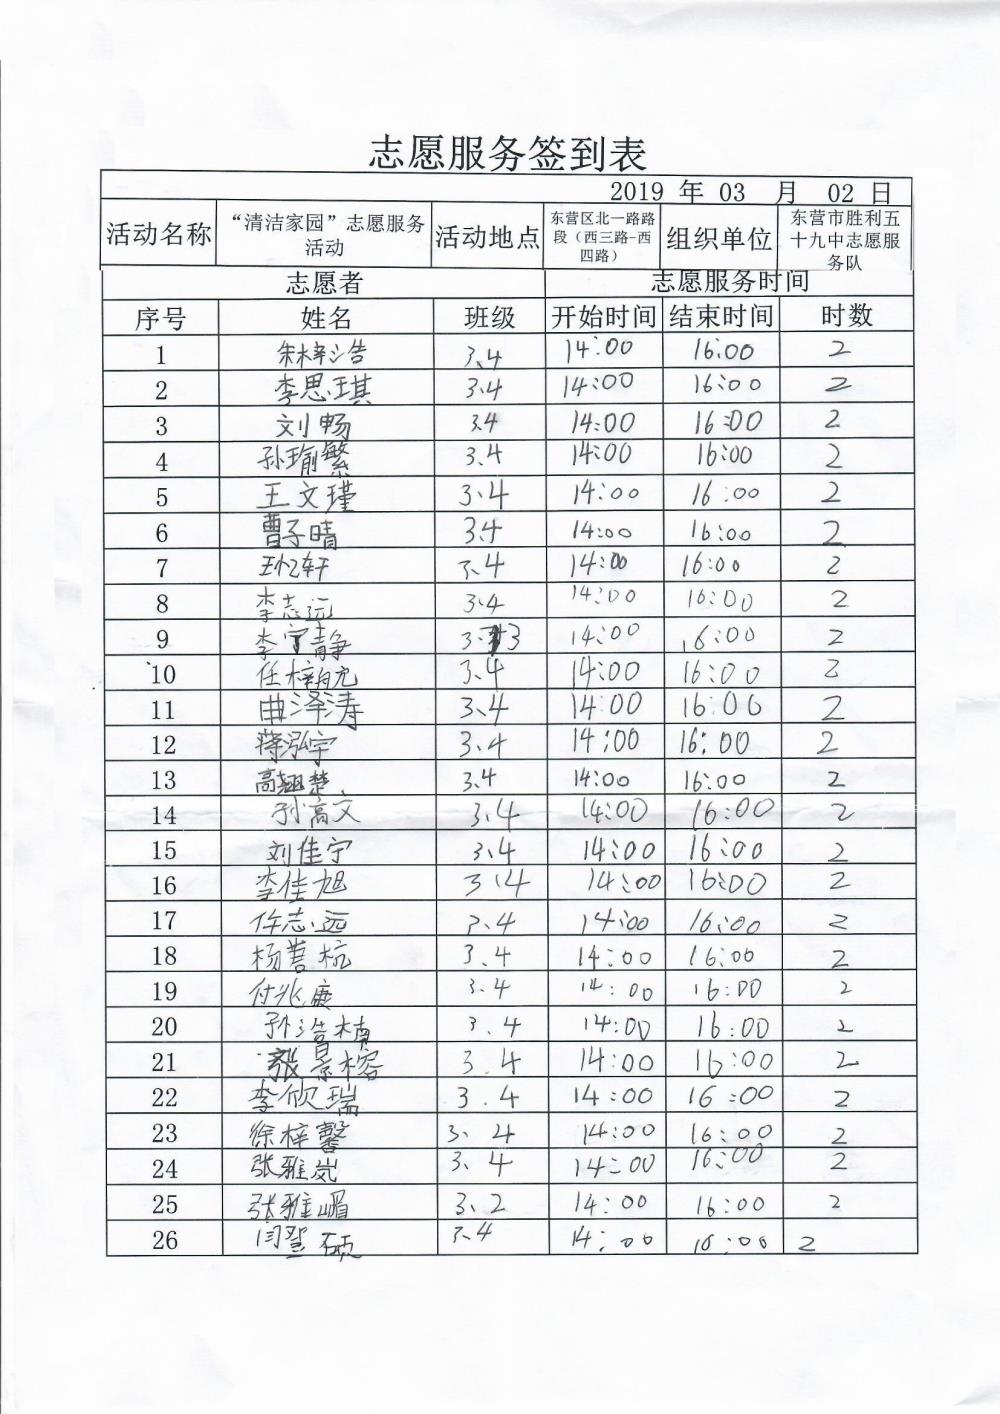 志愿服务签到表
2019 年 03 月 02 日
活动名称 “清洁家园”志愿服务活动 活动地点 东营区北一路路段（西三路-西四路） 组织单位 东营市胜利五十九中志愿服务队
志愿者 志愿服务时间
序号 姓名 班级 开始时间 结束时间 时数
1 朱梓浩 3.4 14:00 16:00 2
2 李思琪 3.4 14:00 16:00 2
3 刘畅 3.4 14:00 16:00 2
4 孙瑜繁 3.4 14:00 16:00 2
5 王文瑾 3、4 14:00 16:00 2
6 曹子晴 3.4 14:00 16:00 2
7 3.4 14:00 16:00 2
8 李志远 3.4 14:00 16:00 2
9 李宁静 14:00 16:00 2
10 3.4 14:00 16:00 2
11 曲泽涛 3、4 14:00 16:00 2
12 蒋泓宇 3.4 14:00 16:00 2
13 高翘楚 3.4 14:00 16:00 2
14 孙高文 3.4 14:00 16:00 2
15 刘佳宁 3.4 14:00 16:00 2
16 李佳旭 3.4 14:00 16:00 2
17 任志远 3.4 14:00 16:00 2
18 杨善杭 3.4 14:00 16:00 2
19 付兆庚 3.4 14:00 16:00 2
20 孙浩楠 3.4 14:00 16:00 2
21 张景榕 3.4 14:00 16:00 2
22 李欣瑞 3.4 14:00 16:00 2
23 徐梓馨 3、4 14:00 16:00 2
24 张雅岚 3、4 14:00 16:00 2
25 张雅嵋 3、2 14:00 16:00 2
26 闫登硕 3.4 14:00 16:00 2